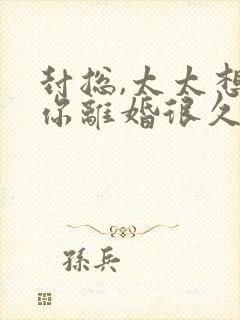 封总,太太想
你離婚很久
孫兵